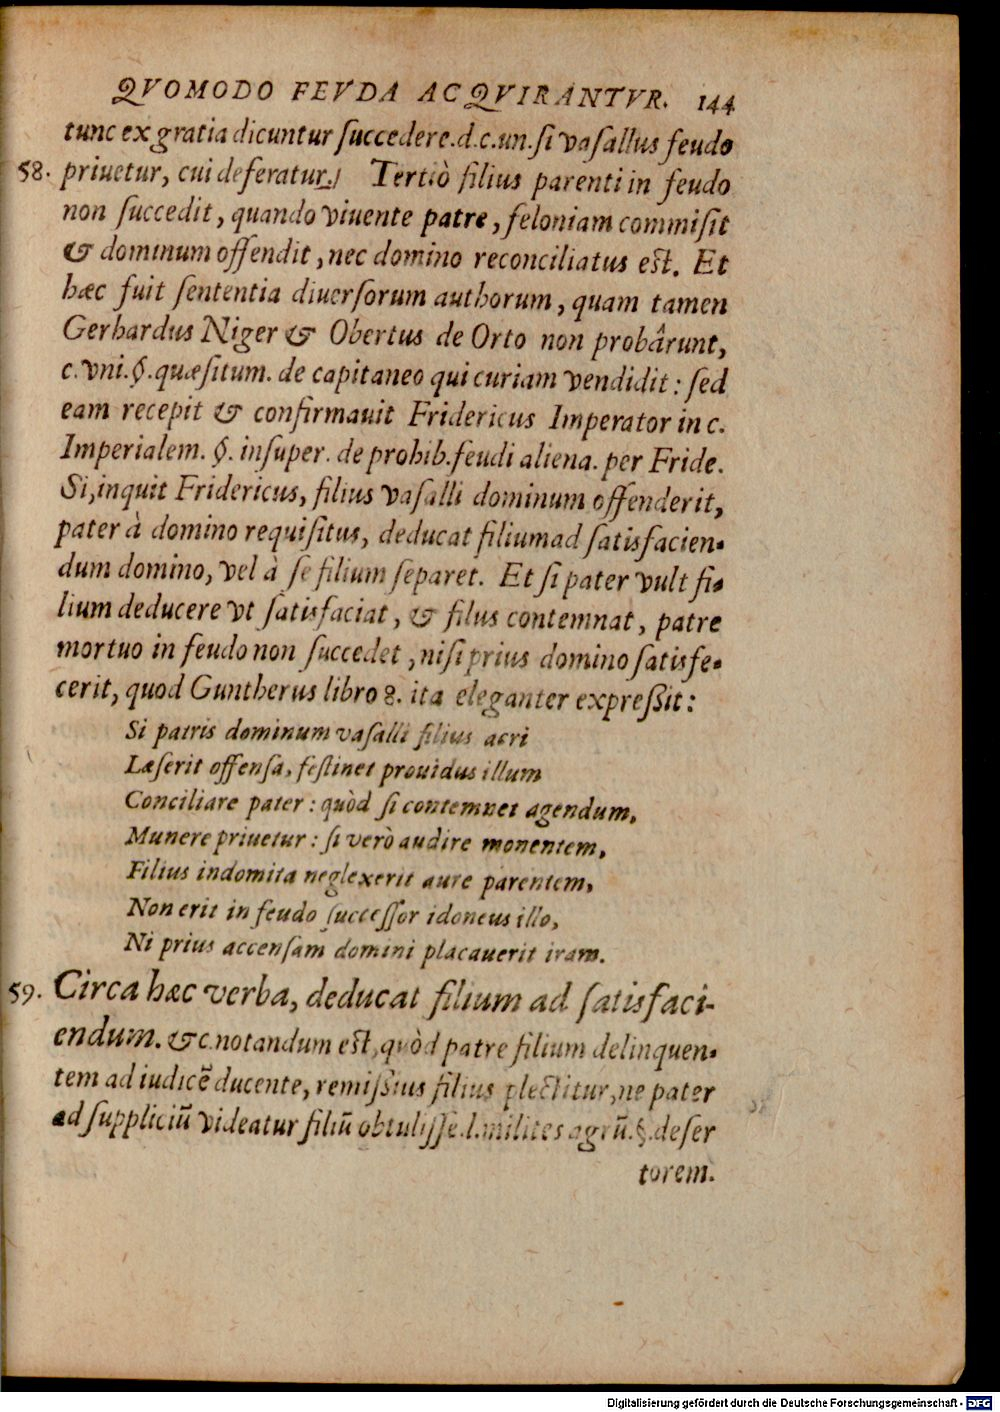 QVOMODO FEVDA ACQVIRANTVR. 144
tunc ex gratia dicuntur ſuccedere.d.c.un.ſi vaſallus feudo
58. priuetur, cui deferatur.] Tertiò filius parenti in feudo
non ſuccedit, quando viuente patre, feloniam commiſit
& dominum offendit, nec domino reconciliatus est. Et
hæc fuit ſententia diuerſorum authorum, quam tamen
Gerhardus Niger & Obertus de Orto non probârunt,
c.vni.§.quæſitum. de capitaneo qui curiam vendidit: ſed
eam recepit & confirmauit Fridericus Imperator in c.
Imperialem. §. inſuper. de prohib.feudi aliena. per Fride.
Si, inquit Fridericus, filius vaſalli dominum offenderit,
pater à domino requiſitus, deducat filium ad ſatisfacien-
dum domino, vel à ſe filium ſeparet. Et ſi pater vult fi-
lium deducere vt ſatisfaciat, & filus contemnat, patre
mortuo in feudo non ſuccedet, niſi prius domino ſatisfe-
cerit, quod Guntherus libro 8. ita eleganter expreßit:
Si patris dominum vaſalli filius acri
Læſerit offenſa, feſtinet prouidus illum
Conciliare pater: quòd ſi contemnet agendum,
Munere priuetur: ſi verò audire monentem,
Filius indomita neglexerit aure parentem,
Non erit in feudo ſucceſſor idoneus illo,
Ni prius accenſam domini placauerit iram.
59. Circa hæc verba, deducat filium ad ſatisfaci-
endum. &c. notandum est, quòd patre filium delinquen-
tem ad iudicē ducente, remißius filius plectitur, ne pater
ad ſuppliciū videatur filiū obtuliſſe.l.milites agrū.§.deſer
torem.
Digitalisierung gefördert durch die Deutsche Forschungsgemeinschaft - DFG